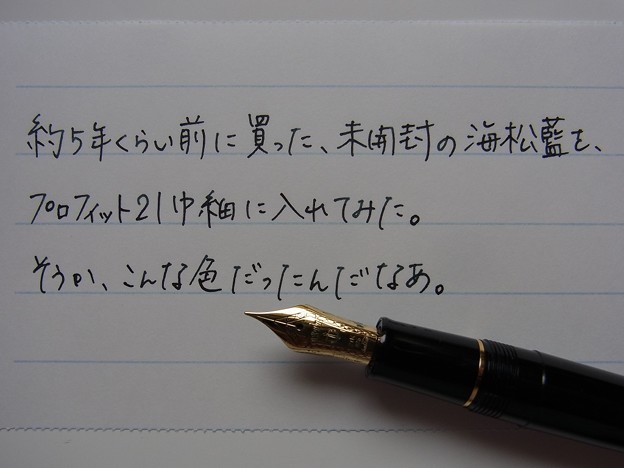 約5年くらい前に買った、未開封の海松藍を、
プロフィット21中細に入れてみた。
そうか、こんな色だったんだなあ。